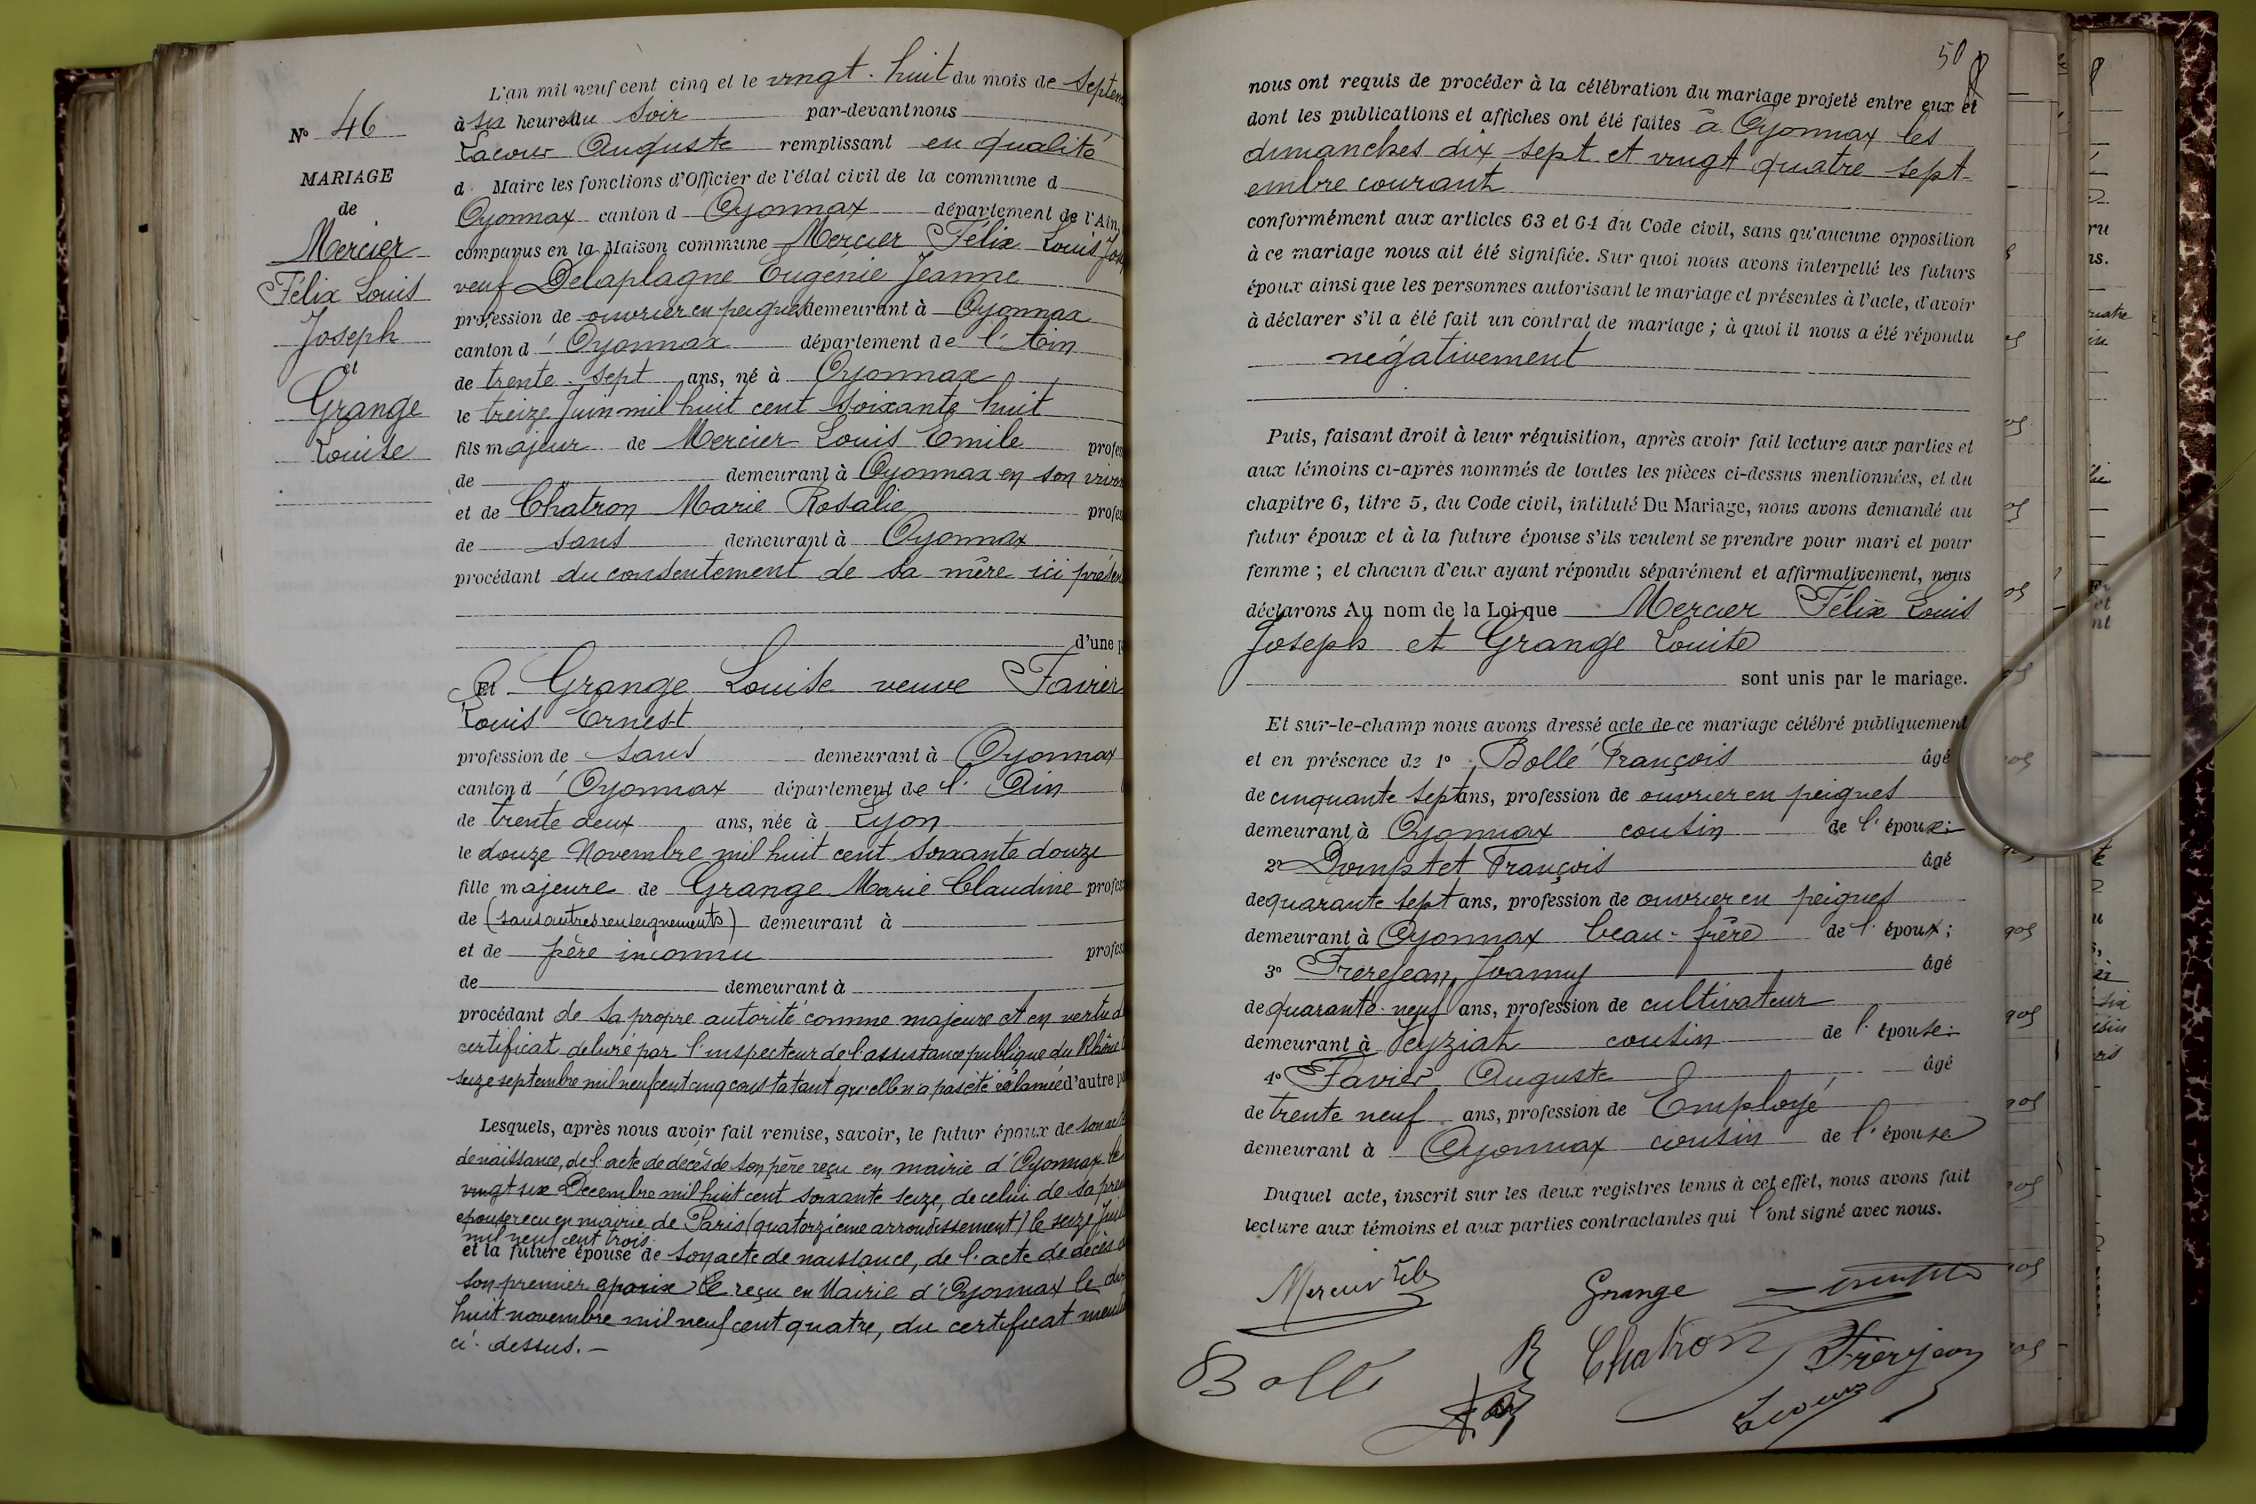 L'an mil neuf cent cinq et le vingt-huit du mois de Septem
à six heures du soir par-devant nous
Lacour Auguste remplissant en qualité
d Maire les fonctions d'Officier de l'état civil de la commune d
Oyonnax canton d Oyonnax département de l'Ain,
comparus en la Maison commune Mercier Félix Louis Jos
veuf Delaplagne Eugénie Jeanne
profession de ouvrier en peignes demeurant à Oyonnax
canton d' Oyonnax département de l'Ain
de trente-sept ans, né à Oyonnax
le treize Juin mil huit cent soixante huit
fils majeur de Mercier Louis Emile profes
de demeurant à Oyonnax en son viva
et de Chatron Marie Rosalie profes
de sans demeurant à Oyonnax
procédant du consentement de sa mère ici présen
d'une p
Et Grange Louise veuve Favier
Louis Ernest
profession de sans demeurant à Oyonnax
canton d' Oyonnax département de l'Ain
de trente deux ans, née à Lyon
le douze Novembre mil huit cent soixante douze
fille majeure de Grange Marie Claudine profes
de (sans autres renseignements) demeurant à
et de père inconnu profes
de demeurant à
procédant de sa propre autorité comme majeure et en vertu d
certificat délivré par l'inspecteur de l'assistance publique du Rhône l
seize septembre mil neuf cent cinq constatant qu'elle n'a pas été réclamée d'autre pa
Lesquels, après nous avoir fait remise, savoir, le futur époux de son acte
de naissance, de l'acte de décès de son père reçu en mairie d'Oyonnax le
vingt six Décembre mil huit cent soixante seize, de celui de sa prem
épouse reçu en mairie de Paris (quatorzième arrondissement) le seize Juil
mil neuf cent trois
et la future épouse de son acte de naissance, de l'acte de décès d
son premier époux reçu en Mairie d'Oyonnax le dix
huit novembre mil neuf cent quatre, du certificat menti
ci-dessus.-
N° 46
MARIAGE
de
Mercier
Félix Louis
Joseph
et
Grange
Louise
50
nous ont requis de procéder à la célébration du mariage projeté entre eux et
dont les publications et affiches ont été faites à Oyonnax les
dimanches dix sept et vingt quatre sept-
embre courant
conformément aux articles 63 et 64 du Code civil, sans qu'aucune opposition
à ce mariage nous ait été signifiée. Sur quoi nous avons interpellé les futurs
époux ainsi que les personnes autorisant le mariage et présentes à l'acte, d'avoir
à déclarer s'il a été fait un contrat de mariage ; à quoi il nous a été répondu
négativement
Puis, faisant droit à leur réquisition, après avoir fait lecture aux parties et
aux témoins ci-après nommés de toutes les pièces ci-dessus mentionnées, et du
chapitre 6, titre 5, du Code civil, intitulé Du Mariage, nous avons demandé au
futur époux et à la future épouse s'ils veulent se prendre pour mari et pour
femme ; et chacun d'eux ayant répondu séparément et affirmativement, nous
déclarons Au nom de la Loi que Mercier Félix Louis
Joseph et Grange Louise
sont unis par le mariage.
Et sur-le-champ nous avons dressé acte de ce mariage célébré publiquement
et en présence de 1° Bollé François âgé
de cinquante sept ans, profession de ouvrier en peignes
demeurant à Oyonnax cousin de l'époux;
2° Domptet François âgé
de quarante sept ans, profession de ouvrier en peignes
demeurant à Oyonnax beau-frère de l'époux;
3° Frerejean, Joanny âgé
de quarante-neuf ans, profession de cultivateur
demeurant à Veyziat cousin de l'épouse;
4° Favier Auguste âgé
de trente neuf ans, profession de Employé
demeurant à Oyonnax cousin de l'épouse
Duquel acte, inscrit sur les deux registres tenus à cet effet, nous avons fait
lecture aux témoins et aux parties contractantes qui l'ont signé avec nous.
Mercier Félix
Grange
Bollé
R Chatron
Frerejean
Lacour